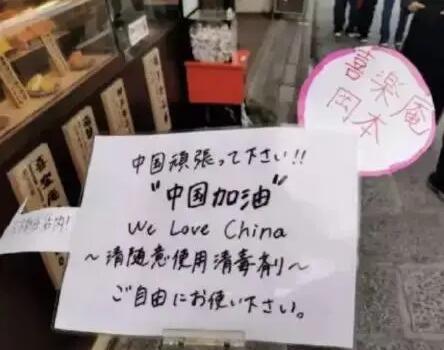 中国頑張って下さい!!
"中国加油"
We Love China
～清随意使用消毒剤～
ご自由にお使い下さい。
喜楽庵
岡本